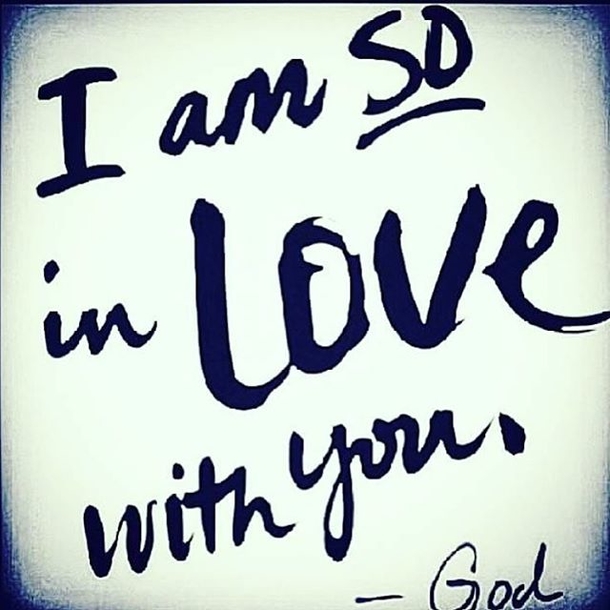 I am SO
in LOVE
with you.
- God